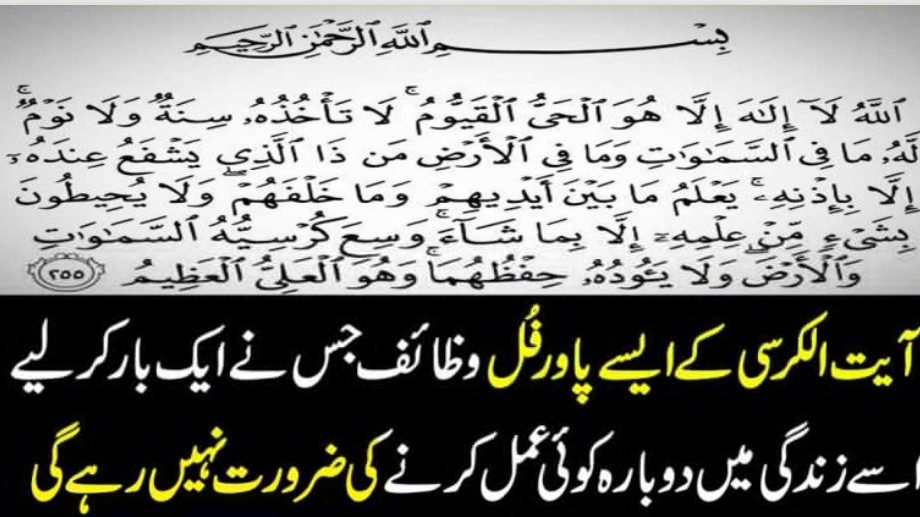 بِسْمِ اللَّهِ الرَّحْمَٰنِ الرَّحِيمِ
اللَّهُ لَا إِلَٰهَ إِلَّا هُوَ الْحَيُّ الْقَيُّومُ ۚ لَا تَأْخُذُهُ سِنَةٌ وَلَا نَوْمٌ ۚ
لَّهُ مَا فِي السَّمَاوَاتِ وَمَا فِي الْأَرْضِ مَن ذَا الَّذِي يَشْفَعُ عِندَهُ
إِلَّا بِإِذْنِهِ ۚ يَعْلَمُ مَا بَيْنَ أَيْدِيهِمْ وَمَا خَلْفَهُمْ ۖ وَلَا يُحِيطُونَ
بِشَيْءٍ مِّنْ عِلْمِهِ إِلَّا بِمَا شَاءَ ۚ وَسِعَ كُرْسِيُّهُ السَّمَاوَاتِ
وَالْأَرْضَ ۖ وَلَا يَئُودُهُ حِفْظُهُمَا ۚ وَهُوَ الْعَلِيُّ الْعَظِيمُ ٢٥٥
آیت الکرسی کے ایسے پاورفُل وظائف جس نے ایک بار کر لیے
اسے زندگی میں دوبارہ کوئی عمل کرنے کی ضرورت نہیں رہے گی